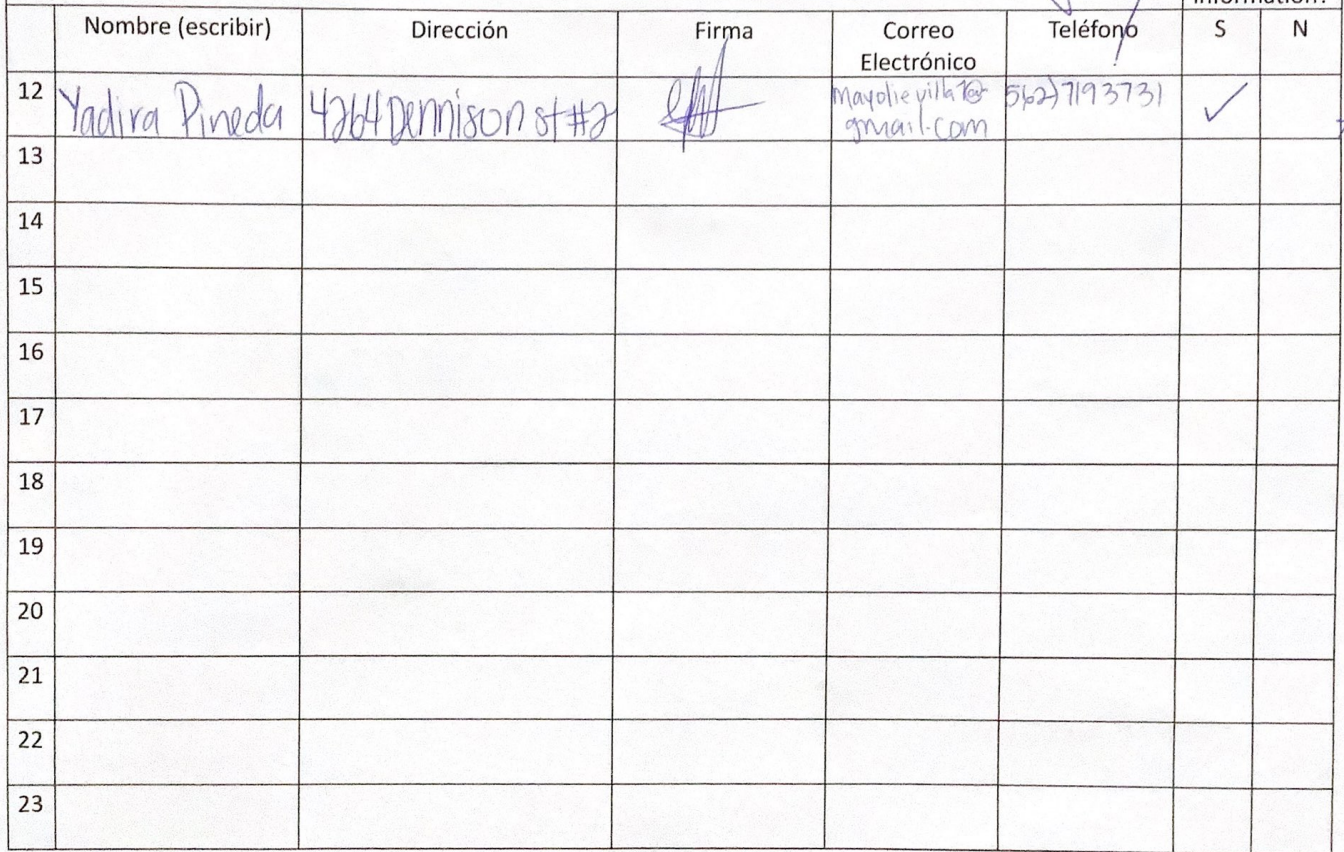 Nombre (escribir) Dirección Firma Correo Electrónico Teléfono S N
12 Yadira Pineda 4264 Dennison st #2 mayolievilla1@ 562)7193731 ✓
gmail.com
13
14
15
16
17
18
19
20
21
22
23